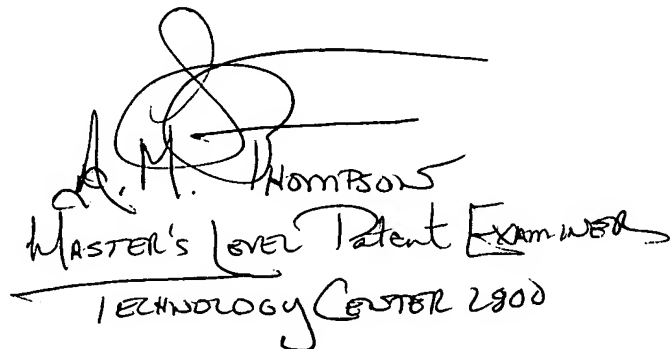 A. M. THOMPSON
MASTER'S LEVEL Patent EXAMINER
TECHNOLOGY CENTER 2800